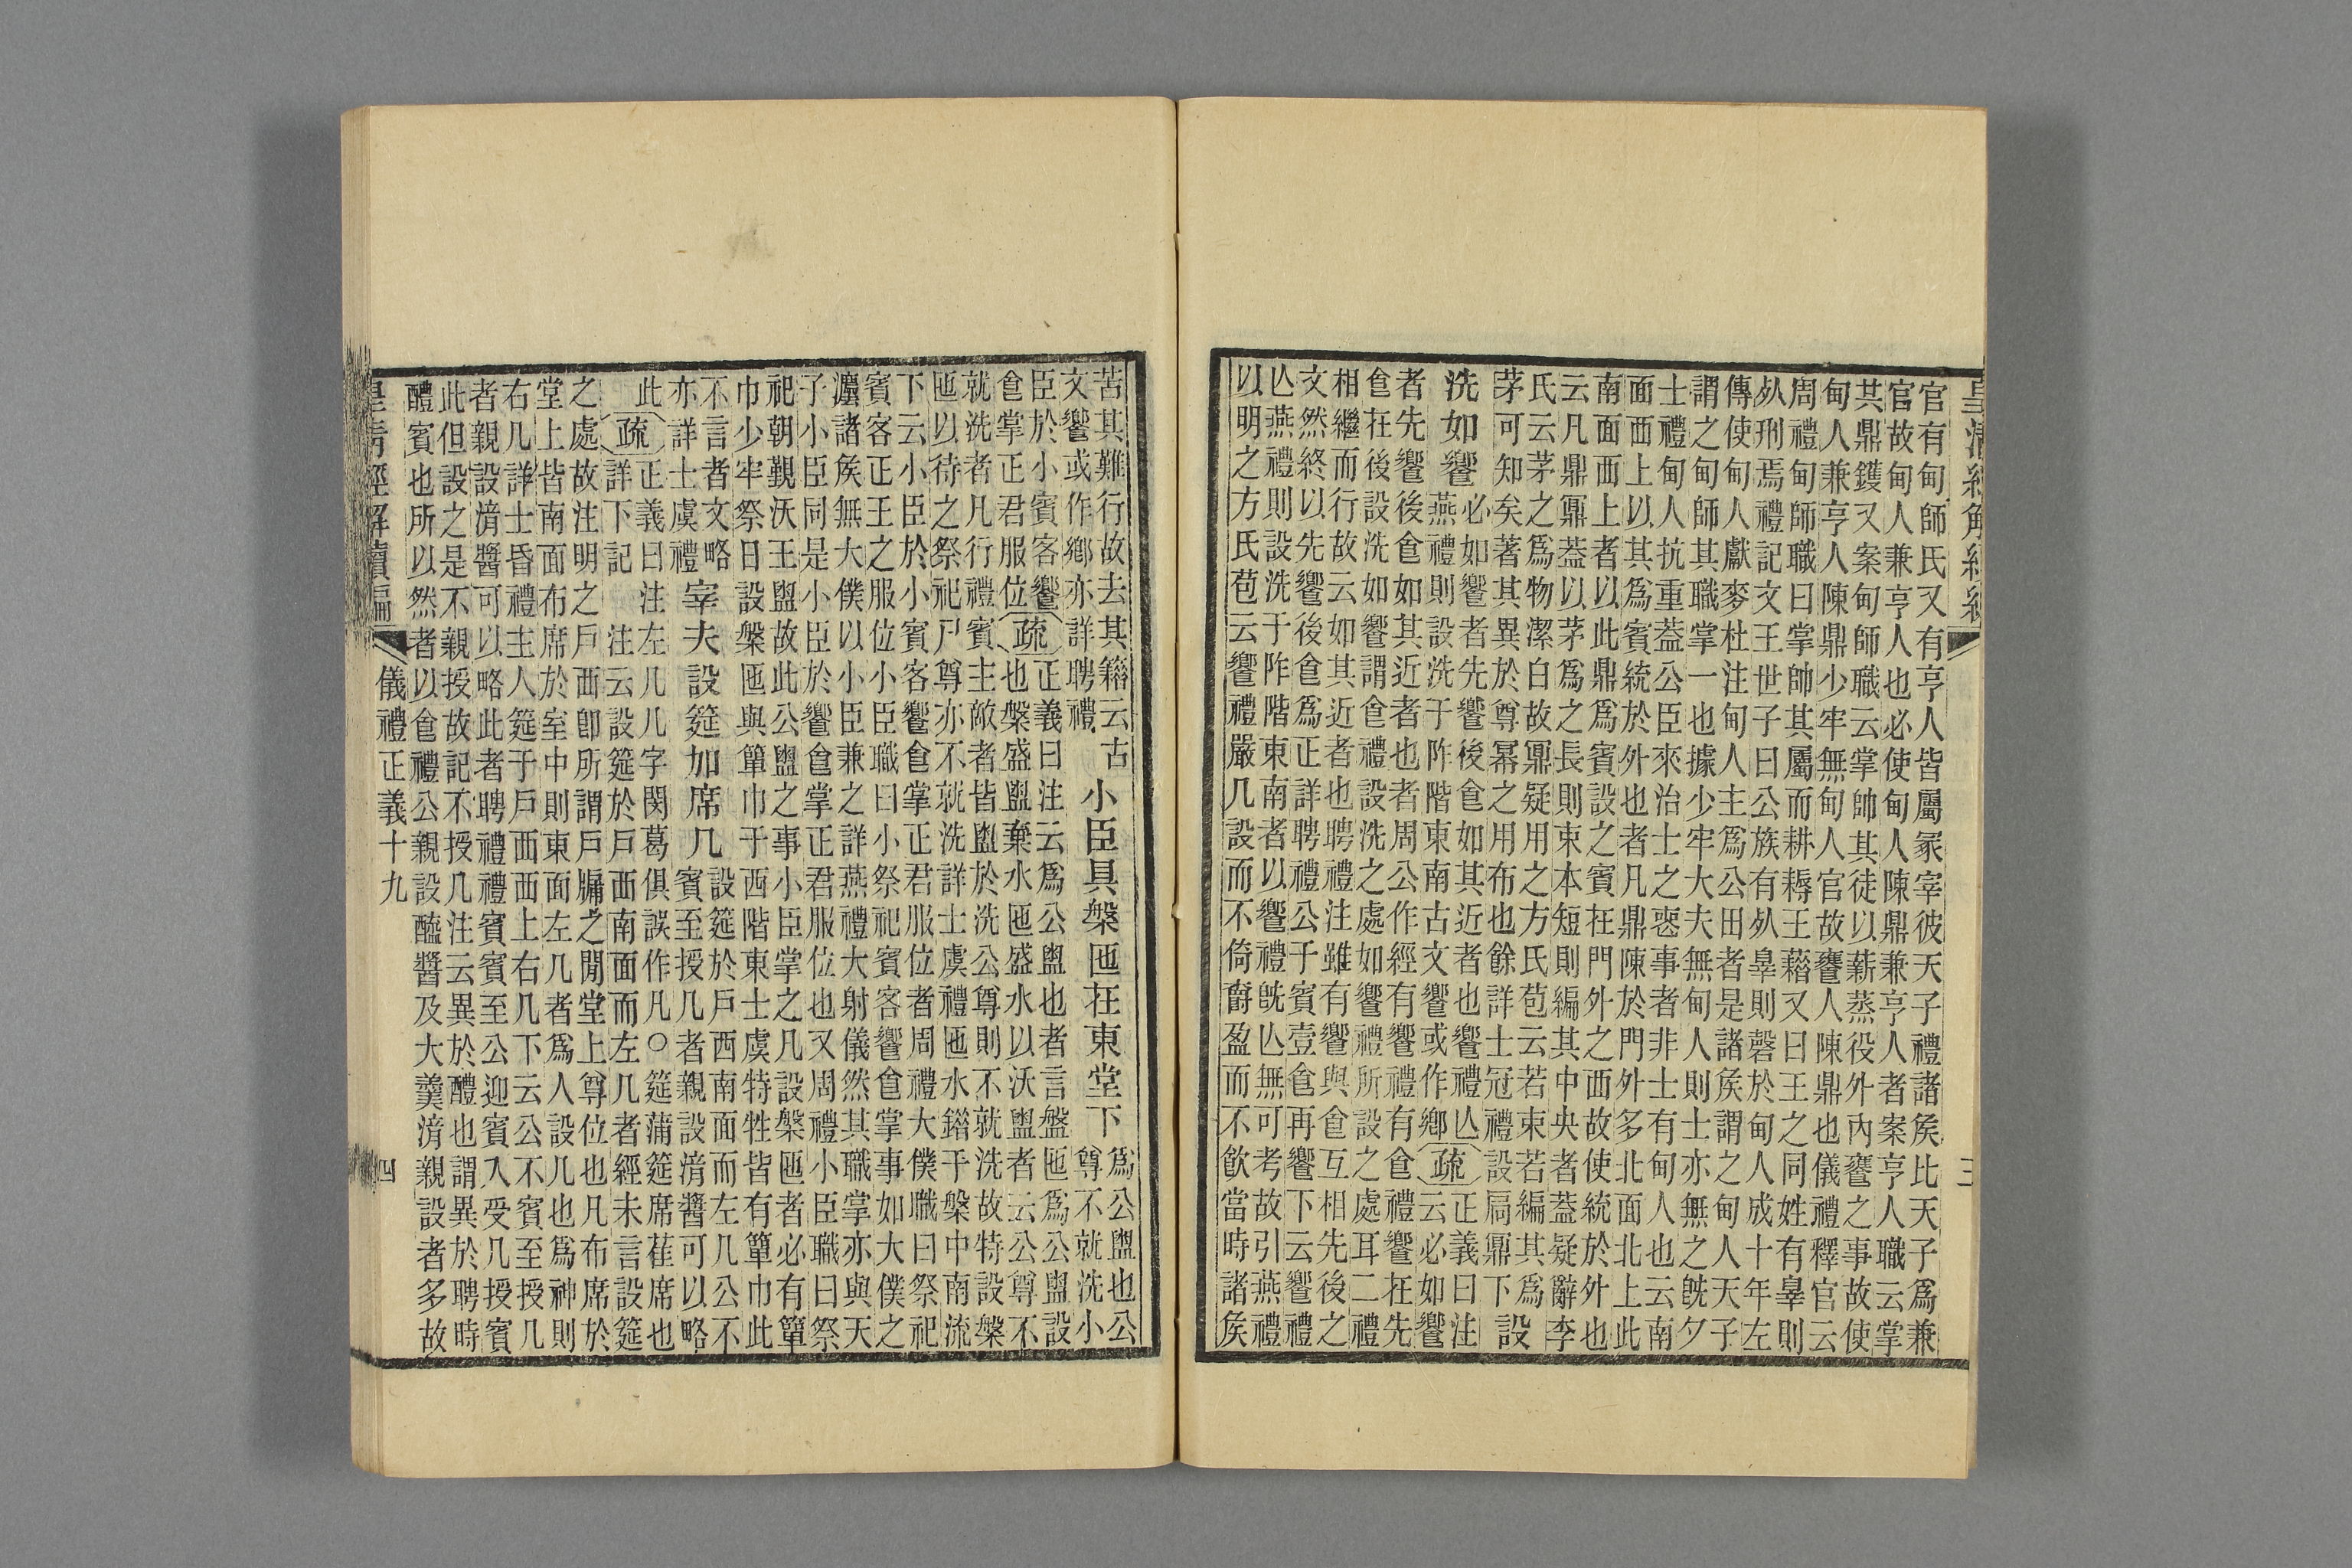 皇清經解續編
三
官有甸師氏又有亨人皆屬冢宰彼天子禮諸矦比天子爲兼
官故甸人兼亨人也必使甸人陳鼎兼亨人者案亨人職云掌
其鼎鑊又案甸師職云掌帥其徒以薪蒸役外內饔之事故使
甸人兼亨人陳鼎少牢無甸人官故饔人陳鼎也儀禮釋官云
周禮甸師職曰掌帥其屬而耕耨王藉又曰王之同姓有辠則
㱙刑焉禮記文王世子曰公族有㱙辠則磬於甸人成十年左
傳使甸人獻麥杜注甸人主爲公田者是諸矦謂之甸人天子
謂之甸師其職掌一也據少牢大夫無甸人則士亦無之旣夕
士禮甸人抗重蓋公臣來治士之喪事者非士有甸人也云南
面西上以其爲賓統於外也者凡鼎陳於門外多北面北上此
南面西上者以此鼎爲賓設之賓在門外之西故使統於外也
云凡鼎鼏蓋以茅爲之長則束本短則編其中央者蓋疑辭李
氏云茅之爲物潔白故鼏疑用之方氏苞云若束若編其爲
茅可知矣著其異於尊冪之用布也餘詳士冠禮設扃鼎下
設
洗如饗
必如饗者先饗後食如其近者也饗禮亡
燕禮則設洗于阼階東南古文饗或作鄉
疏
正義曰注
云必如饗
者先饗後食如其近者也者周公作經有饗禮有食禮饗在先
食在後設洗如饗謂食禮設洗之處如饗禮所設之處耳二禮
相繼而行故云如其近者也聘禮注雖有饗與食互相先後之
文然終以先饗後食爲正詳聘禮公于賓壹食再饗下云饗禮
亡燕禮則設洗于阼階東南者以饗禮旣亡無可考故引燕禮
以明之方氏苞云饗禮嚴几設而不倚爵盈而不飮當時諸矦
苦其難行故去其籍云古
文饗或作鄉亦詳聘禮
小臣具槃匜在東堂下
爲公盥也公
尊不就洗小
臣於小賓客饗
食掌正君服位
疏
正義曰注云爲公盥也者言盤匜爲公盥設
也槃盛盥棄水匜盛水以沃盥者云公尊不
就洗者凡行禮賓主敵者皆盥於洗公尊則不就洗故特設槃
匜以待之祭祀尸尊亦不就洗詳士虞禮匜水錯于槃中南流
下云小臣於小賓客饗食掌正君服位者周禮大僕職曰祭祀
賓客正王之服位小臣職曰小祭祀賓客饗食掌事如大僕之
灋諸矦無大僕以小臣兼之詳燕禮大射儀然其職掌亦與天
子小臣同是小臣於饗食掌正君服位也又周禮小臣職曰祭
祀朝覲沃王盥故此公盥之事小臣掌之凡設槃匜者必有簞
巾少牢祭日設槃匜與簞巾于西階東士虞特牲皆有簞巾此
不言者文略
亦詳士虞禮
宰夫設筵加席几
設筵於戶西南面而左几公不
賓至授几者親設湆醬可以略
此
疏
正義曰注左几几字閩葛俱誤作凡○筵蒲筵席萑席也
詳下記 注云設筵於戶西南面而左几者經未言設筵
之處故注明之戶西卽所謂戶牖之閒堂上尊位也凡布席於
堂上皆南面布席於室中則東面左几者爲人設几也爲神則
右几詳士昏禮主人筵于戶西西上右几下云公不賓至授几
者親設湆醬可以略此者聘禮禮賓賓至公迎賓入受几授賓
此但設之是不親授故記不授几注云異於醴也謂異於聘時
醴賓也所以然者以食禮公親設醯醬及大羹湆親設者多故
皇清經解續編
儀禮正義十九
四